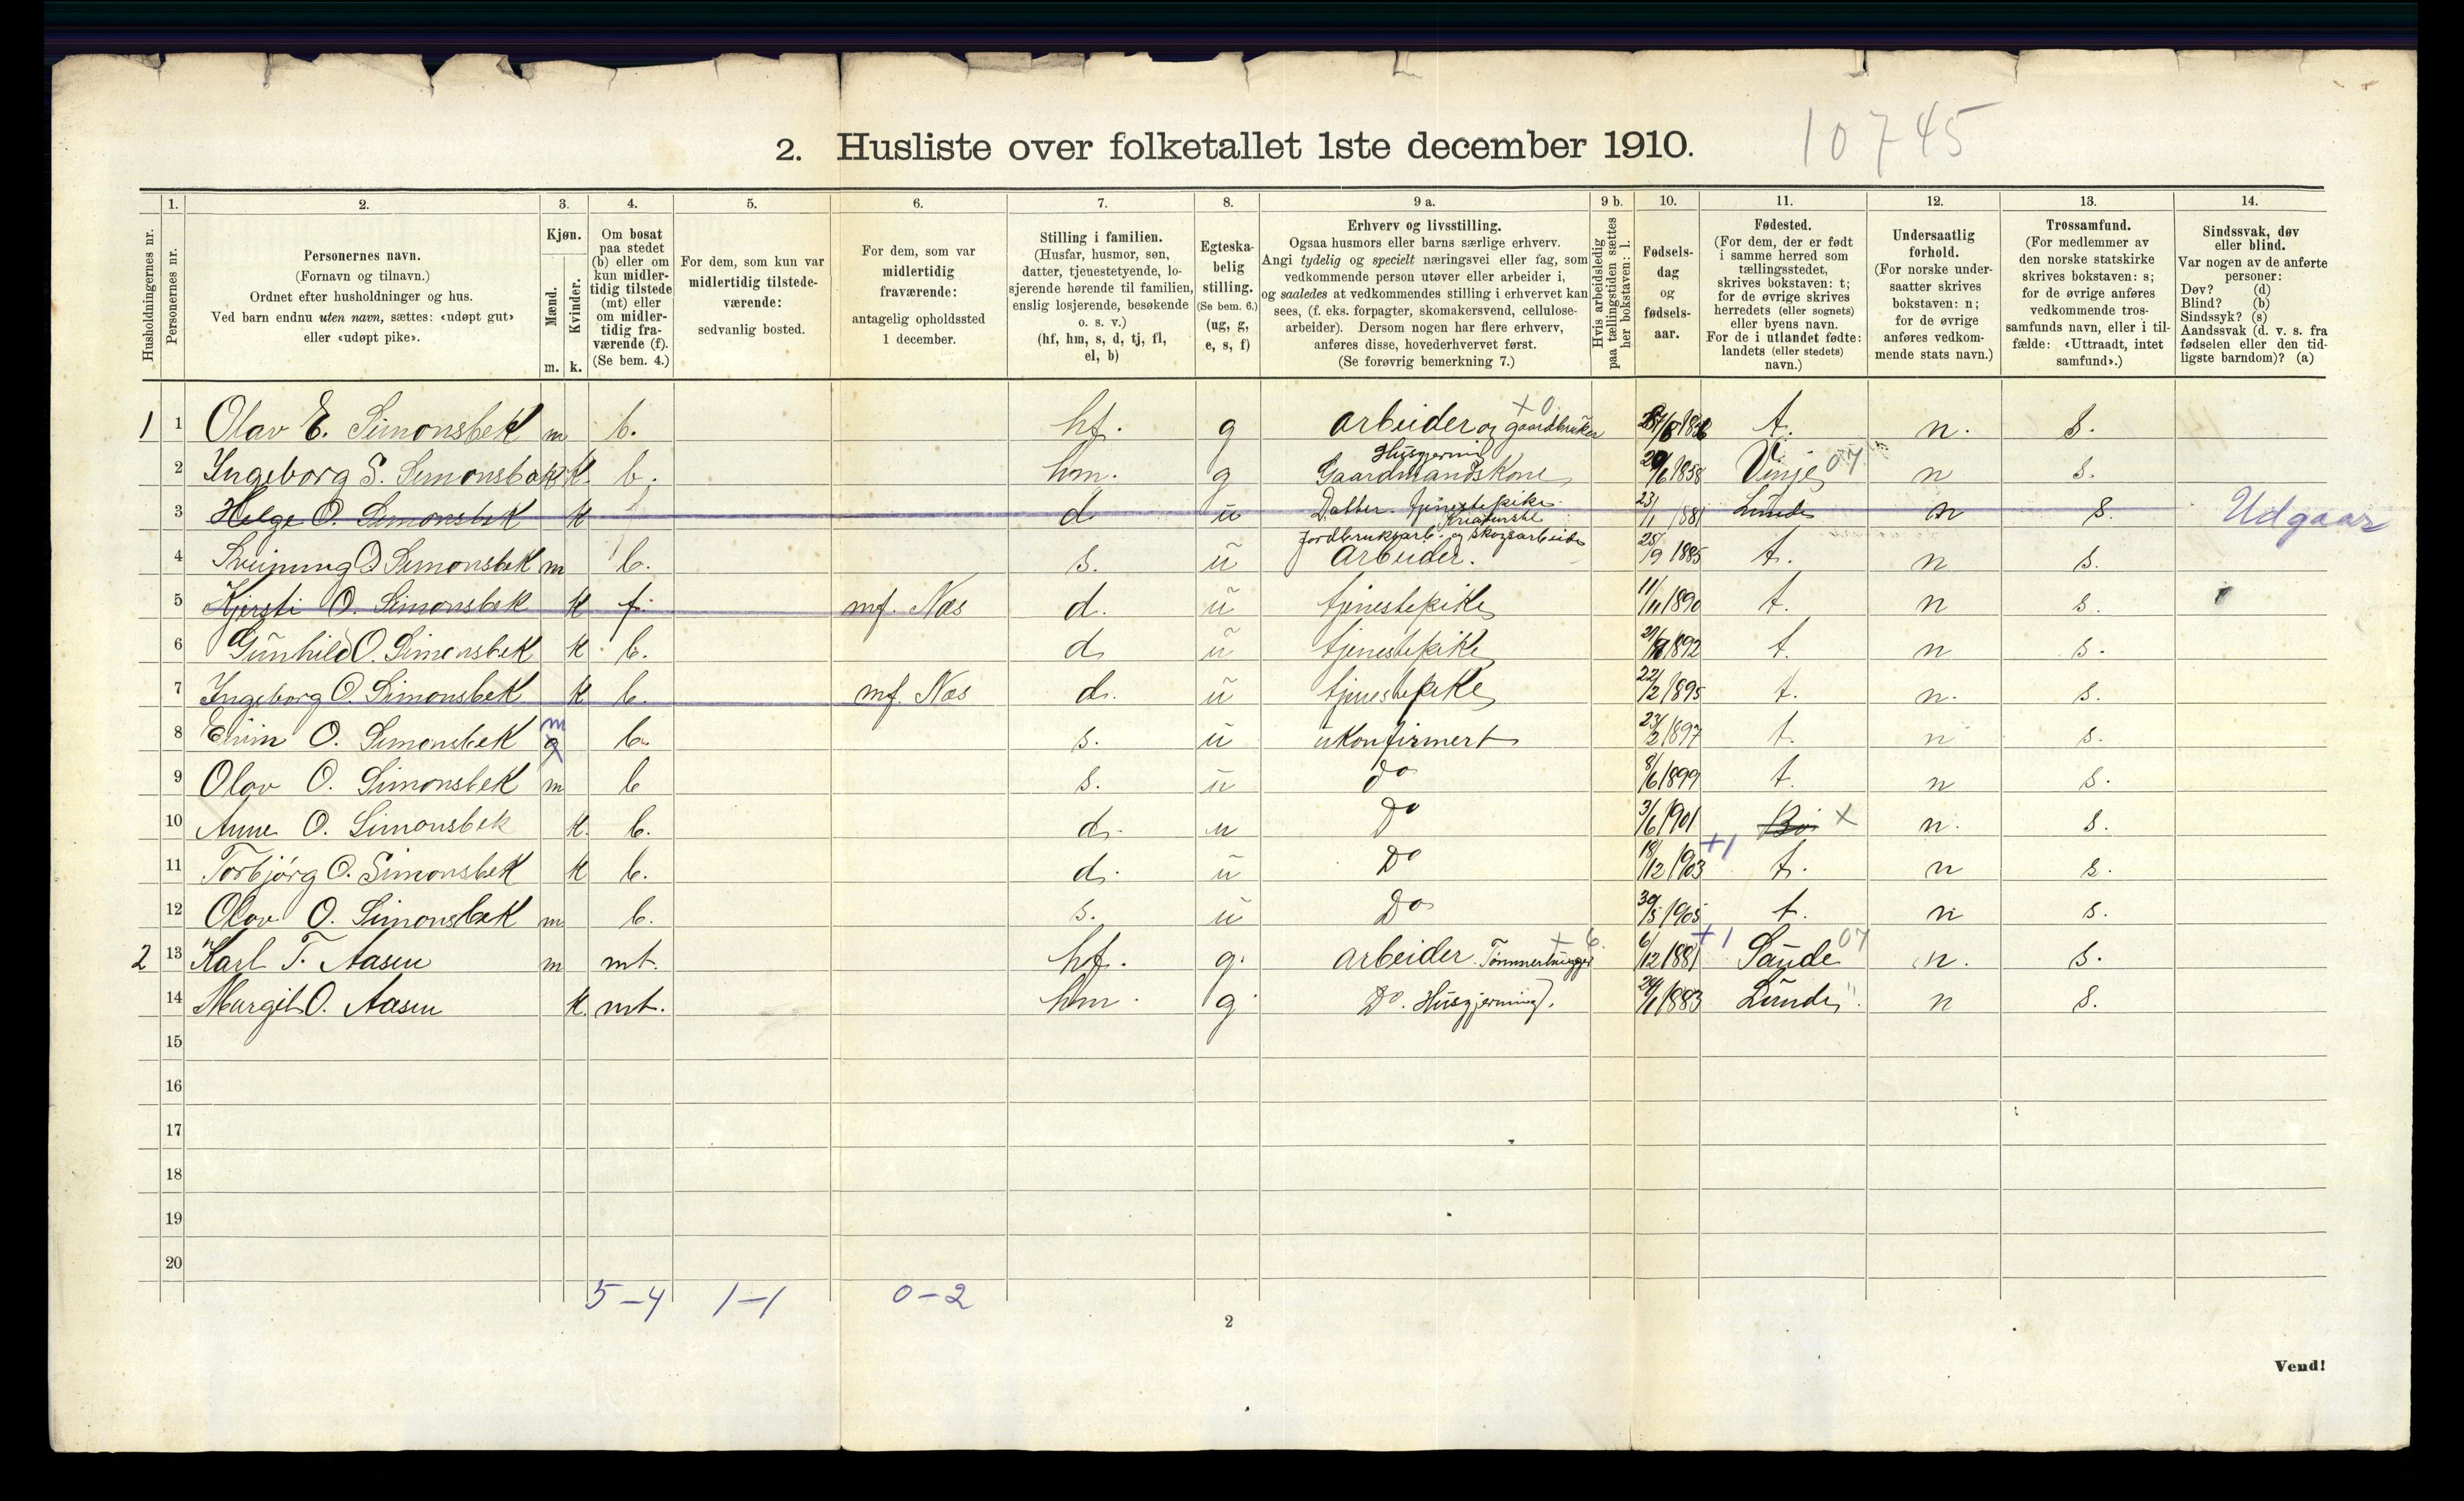 10745
2. Husliste over folketallet 1ste december 1910.
Husholdningernes nr.
1.
Personernes nr.
2.
Personernes navn.
(Fornavn og tilnavn.)
Ordnet efter husholdninger og hus.
Ved barn endnu uten navn, sættes: «udøpt gut»
eller «udøpt pike».
3.
Kjøn.
Mænd.
Kvinder.
m. k.
4.
Om bosat
paa stedet
(b) eller om
kun midler-
tidig tilstede
(mt) eller
om midler-
tidig fra-
værende (f).
(Se bem. 4.)
5.
For dem, som kun var
midlertidig tilstede-
værende:
sedvanlig bosted.
6.
For dem, som var
midlertidig
fraværende:
antagelig opholdssted
1 december.
7.
Stilling i familien.
(Husfar, husmor, søn,
datter, tjenestetyende, lo-
sjerende hørende til familien,
enslig losjerende, besøkende
o. s. v.)
(hf, hm, s, d, tj, fl,
el, b)
8.
Egteska-
belig
stilling.
(Se bem. 6.)
(ug, g,
e, s, f)
9 a.
Erhverv og livsstilling.
Ogsaa husmors eller barns særlige erhverv.
Angi tydelig og specielt næringsvei eller fag, som
vedkommende person utøver eller arbeider i,
og saaledes at vedkommendes stilling i erhvervet kan
sees, (f. eks. forpagter, skomakersvend, cellulose-
arbeider). Dersom nogen har flere erhverv,
anføres disse, hovederhvervet først.
(Se forøvrig bemerkning 7.)
9 b.
Hvis arbeidsledig
paa tællingstiden sættes
her bokstaven: l.
10.
Fødsels-
dag
og
fødsels-
aar.
11.
Fødested.
(For dem, der er født
i samme herred som
tællingsstedet,
skrives bokstaven: t;
for de øvrige skrives
herredets (eller sognets)
eller byens navn.
For de i utlandet fødte:
landets (eller stedets)
navn.)
12.
Undersaatlig
forhold.
(For norske under-
saatter skrives
bokstaven: n;
for de øvrige
anføres vedkom-
mende stats navn.)
13.
Trossamfund.
(For medlemmer av
den norske statskirke
skrives bokstaven: s;
for de øvrige anføres
vedkommende tros-
samfunds navn, eller i til-
fælde: «Uttraadt, intet
samfund».)
14.
Sindssvak, døv
eller blind.
Var nogen av de anførte
personer:
Døv? (d)
Blind? (b)
Sindssyk? (s)
Aandssvak (d. v. s. fra
fødselen eller den tid-
ligste barndom)? (a)
1 1 Olav E. Simonsbek m b. hf. g arbeider og gaardbruker +0 t. n. s.
2 Ingeborg S. Simonsbek K. b. hm. g Husgjerning Gaardmandskone /6 1858 Vinje 07 n s.
3 Helge O. Simonsbek K d ü Datter tjenestepike 23/1 1881 Lunde n s. Udgaar
4 Sveinung O Simonsbek m b. s. ü jordbruksarb. og skogsarbeide Arbeider. 25/9 1885 t. n s.
5 Kjersti O. Simonsbek K f. mf. Næs d. ü tjenestepike 11/11 1890 t. n s.
6 Günhild O. Simonsbek K b. d ü tjenestepike 1892 t. n s.
7 Ingeborg O. Simonsbek K b. mf. Næs d. ü tjenestepike 22/2 1895 t. n. s.
8 O. Simonsbek m b. s. ü ükonfirmert 23/2 1897 t. n s.
9 Olav O. Simonsbek m b s. ü Do 8/6 1899 t. n s.
10 Anne O. Simonsbek K. b. d. u Do 3/6 1901 Bø x n. s.
11 Torbjórg O. Simonsbek K b. d. ü Do 18/12 1903 +1 t. n s.
12 Olav O. Simonsbek m b. s. ü Do 30/5 1905 t. n s.
2 13 Karl T. Aasen m mt. hf. g. arbeider Tømmerhugger + 6. 6/12 1881 +1 Saude 07 n. s.
14 Margit O. Aasen K. mt. hm. g. Do. Husgjerning. /1 1883 Lunde " n s.
15
16
17
18
19
20
5–4 1–1 0–2
2
Vend!